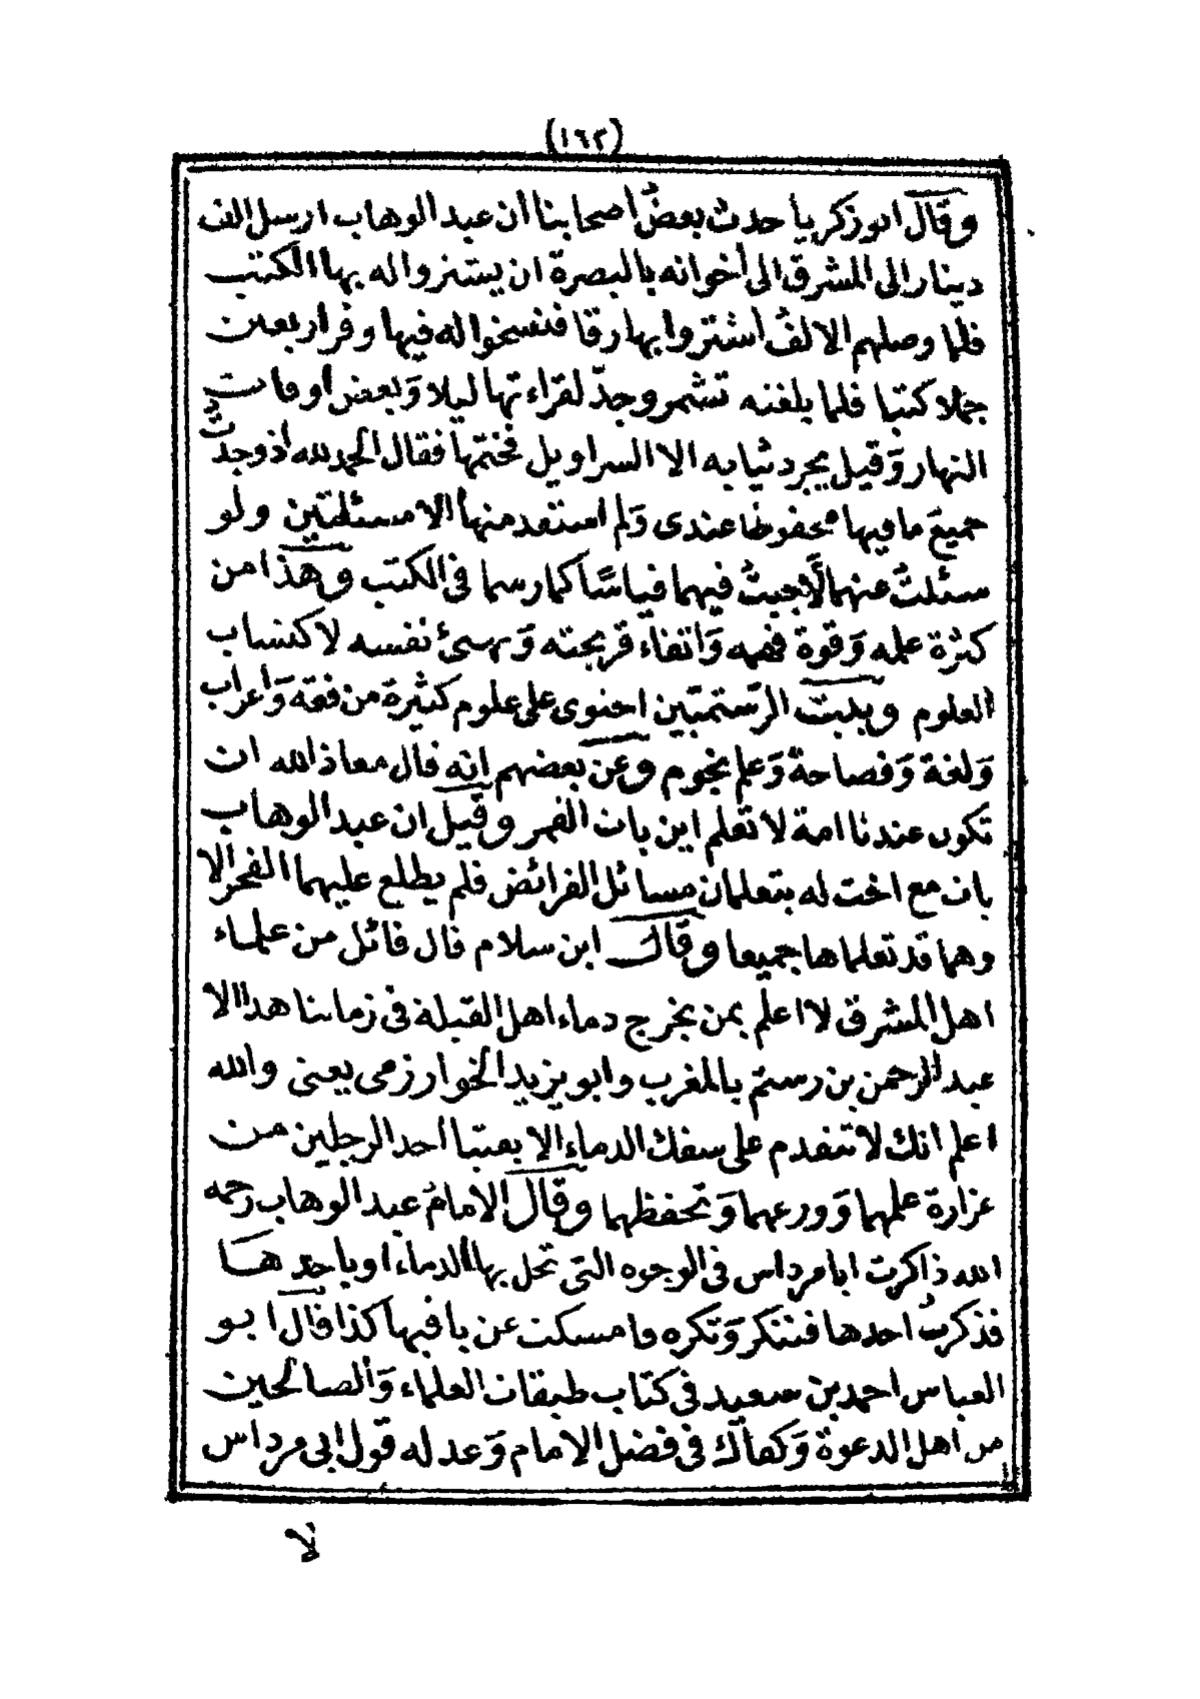 (١٦٢)
وقال ابو زكرياء حدث بعضُ اصحابنا ان عبد الوهاب ارسل الف
دينار الى المشرق الى اخوانه بالبصرة ان يشتروا له بها الكتب
فلما وصلهم الالفُ اشتروا بها رقا فنسخوا له فيها وقر اربعين
جملا كتبا فلما بلغته تشمر وجدّ لقراءتها ليلا وَبعض اوقات
النهار وَقيل يجرد ثيابه الا السراويل فختمها فقال الحمد لله اذ وجدتُ
جميعَ ما فيها محفوظا عندى وَلم استفد منها الا مسئلتين ولو
سئلتُ عنهما لَأجبتُ فيهما قياسًا كما رسما فى الكتب وهذا من
كثرة علمه وَقوة فهمه وَاتقاء قريحته وَتهيئ نفسه لاكتساب
العلوم وبيت الرّستميّين احتوى على علوم كثيرة من فقه وَاعراب
وَلغة وَفصاحة وَعلم نجوم وعن بعضهم انه قال معاذ الله ان
تكون عندنا امة لا تعلم اين بات القمر وقيل ان عبد الوهاب
بات مع اخت له يتعلمان مسائل الفرائض فلم يطلع عليهما الفجر الا
وهما قد تعلماها جميعا وقال ابن سلام قال قائل من علماء
اهل المشرق لا اعلم بمن يخرج دماء اهل القبلة فى زماننا هذا الا
عبد الرحمن بن رستم بالمغرب وابو يزيد الخوارزمى يعنى والله
اعلم انك لا تتقدم على سفك الدماء الا بفتيا احد الرجلين من
غزارة علمهما وَورعهما وَتحفظهما وقال الامامُ عبد الوهاب رحمه
الله ذاكرت ابا مرداس فى الوجوه التى تحل بها الدماء او باحدها
فذكرتُ احدها فتنكر وَتكره وامسكت عن باقيها كذا قال ابو
العباس احمد بن سعيد فى كتاب طبقات العلماء وَالصالحين
من اهل الدعوة وَكفاك فى فضل الامام وَعدله قول ابى مرداس
لا